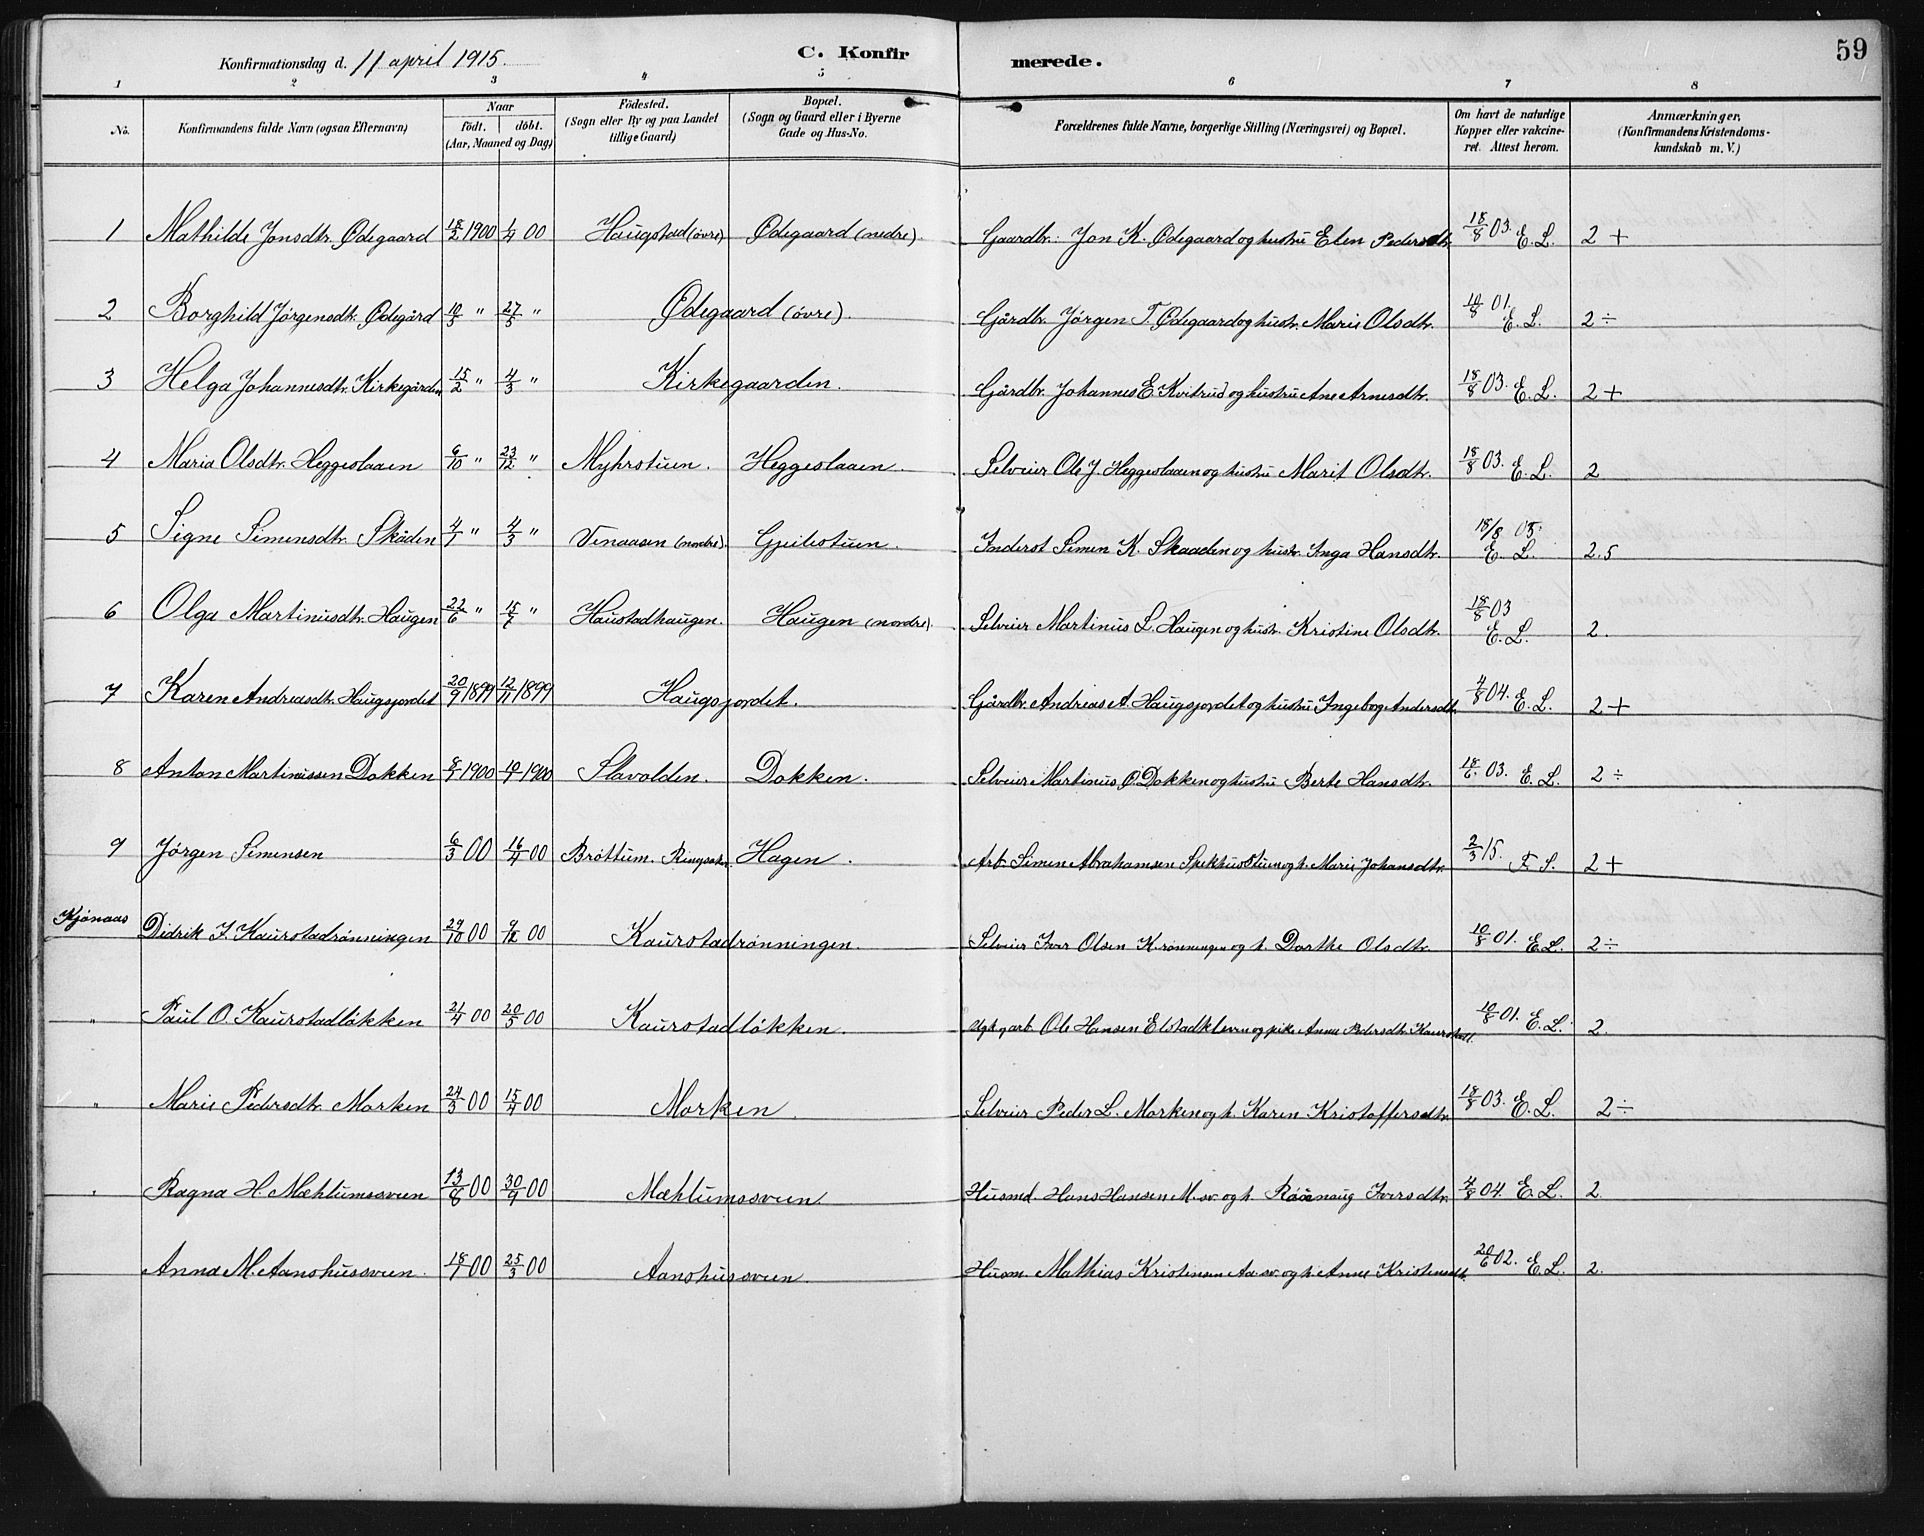 Konfirmationsdag d. 11 april 1915. C. Konfirmerede. 59
1 2 3 4 5 6 7 8
No. Konfirmandens fulde Navn (ogsaa Efternavn) Naar født. døbt. (Aar, Maaned og Dag) Fødested. (Sogn eller By og paa Landet tillige Gaard) Bopæl. (Sogn og Gaard eller i Byerne Gade og Hus-No.) Forældrenes fulde Navne, borgerlige Stilling (Næringsvei) og Bopæl. Om havt de naturlige Kopper eller vakcineret. Attest herom. Anmærkninger, (Konfirmandens Kristendomskundskab m. V.)
1 Mathilde Jonsdtr. Ødegaard 18/2 1900 1/4 00 Haugstad (övre) Ødegaard (nedre). Gaardbr: Jon K. Ødegaard og hustru Elen Pedersdtr. 18/8 03. E. L. 2 +
2 Borghild Jørgensdtr. Ødegård 10/3 " 27/5 " Ødegaard (övre). Gårdbr. Jørgen T. Ødegaard og hustr. Marie Olsdtr. 10/8 01. E. L. 2 ÷
3 Helga Johannesdtr. Kirkegården 15/2 " 4/3 " Kirkegaarden. Gårdbr. Johannes E. Kvitrud og hustru Ane Arnesdtr. 18/8 03. E. L. 2 +
4 Maria Olsdtr. Heggeslaaen 6/10 " 23/12 " Myhrstuen. Heggeslaaen. Selveier Ole J. Heggeslaaen og hustru Marit Olsdtr. 18/8 03. E. L. 2
5 Signe Simensdtr. Skåden 4/1 " 4/3 " Venaasen (nordre). Gpilestuen. Inderst Simen K. Skaaden og hustr. Inga Hansdtr. 18/8 03. E. L. 2.5
6 Olga Martinusdtr. Haugen 22/6 " 15/7 " Haustadhaugen. Haugen (nordre). Selveier Martinus L. Haugen og hustr. Kristine Olsdtr. 18/8 03 E. L. 2.
7 Karen Andreasdtr. Haugsjordet 20/9 1899 12/11 1899 Haugsjordet. Gårdbr. Andreas A. Haugsjordet og hustru Ingeborg Andersdtr. 4/8 04. E. L. 2 +
8 Anton Martinussen Dokken 8/7 1900 19/7 1900 Slavolden. Dokken. Selveier Martinus O. Dokken og hustru Berte Hansdtr. 18/6. 03. E. L. 2 ÷
9 Jørgen Simensen 6/3 00 16/4 00 Brøttum. Ringsaker Hagen. Arb. Simen Abrahamsen Spekhusstuen og h. Marie Johansdtr. 2/3 15. F. S. 2 +
Kjønaas Didrik I. Kaurstadrønningen 29/10 00 9/12 00 Kaurstadrønningen. Selveier Iver Olsen K.rønningen og h. Dorthe Olsdtr. 10/8 01. E. L. 2 ÷
" Paul O. Kaurstadløkken 21/4 00 20/5 00 Kaurstadløkken. Ole Hansen Elstadkleven og pike Anne Pedersdtr. Kaurstadl. 10/8 01. E. L. 2.
" Marie Pedersdtr. Morken 24/3 00 15/4 00 Morken. Selveier Peder L. Morken og h. Karen Kristoffersdtr. 18/8 03. E. L. 2 ÷
" Ragna H. Mæhlumssveen 13/8 00 30/9 00 Mæhlumssveen. Husmd. Hans Hansen M.sv. og h. Rønnaug Iversdtr. 4/8 04. E. L. 2.
Anna M. Aanshussveen. 18/1 00 25/3 00 Aanshussveen. Husm. Mathias Kristensen Aa.sv. og h. Anne Kristensdt. 20/6 02. E. L. 2.